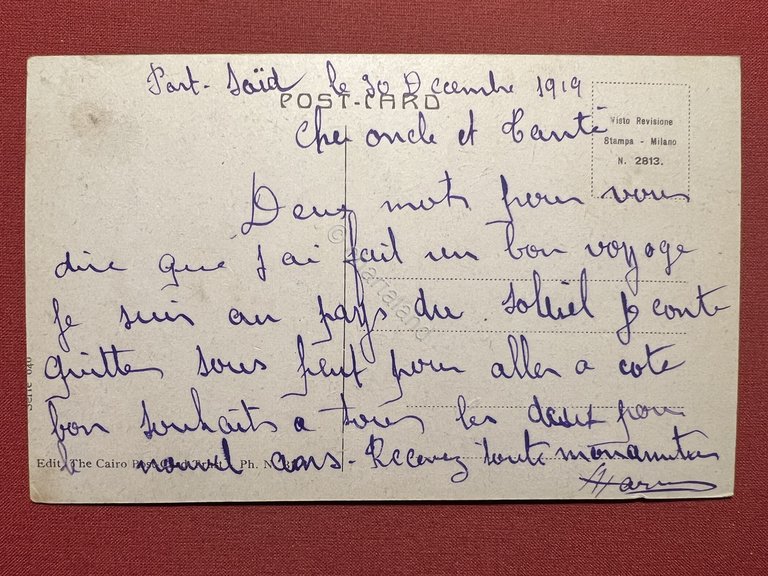 Port-Saïd le 30 Décembre 1919
POST-CARD
Visto Revisione
Stampa - Milano
N. 2813.
Cher oncle et Tante
Deux mots pour vous
dire que j'ai fait un bon voyage
je suis au pays du soleil je conte
quitter sous peut pour aller a cote
bon souhaits a tous les deux pour
le nouvel ans - Recevez toute mon amitier
Serie 640
Edit. The Cairo Post-Card Trust Ph. N.
© cartaland